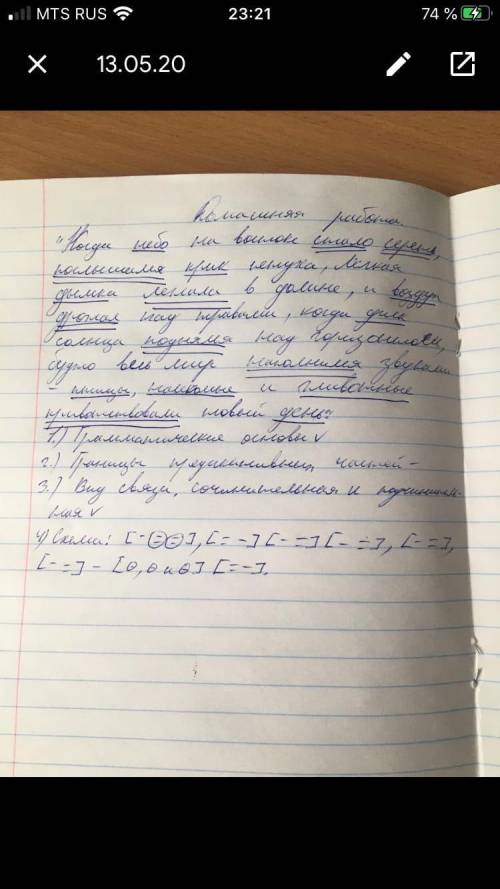 MTS RUS 23:21 74 %
13.05.20
Домашняя работа.
"Когда небо на востоке стало сереть,
послышался крик петуха, лёгкая
дымка легла в долине, и воздух
дрожал над травами, когда диск
солнца поднялся над горизонтом,
будто весь мир наполнился звуками
- птицы, насекомые и животные
приветствовали новый день"
1.) Грамматические основы ✓
2.) Границы предикативных частей -
3.) Вид связи, сочинительная и подчинитель-
ная ✓
4) Схема: [- (=) (=)], [= -] [- =] [- =], [- =],
[- =] - [o, o и o] [= -].